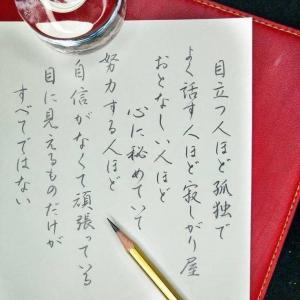 目立つ人ほど孤独で
よく話す人ほど寂しがり屋
おとなしい人ほど
心に秘めていて
努力する人ほど
自信がなくて頑張っている
目に見えるものだけが
すべてではない